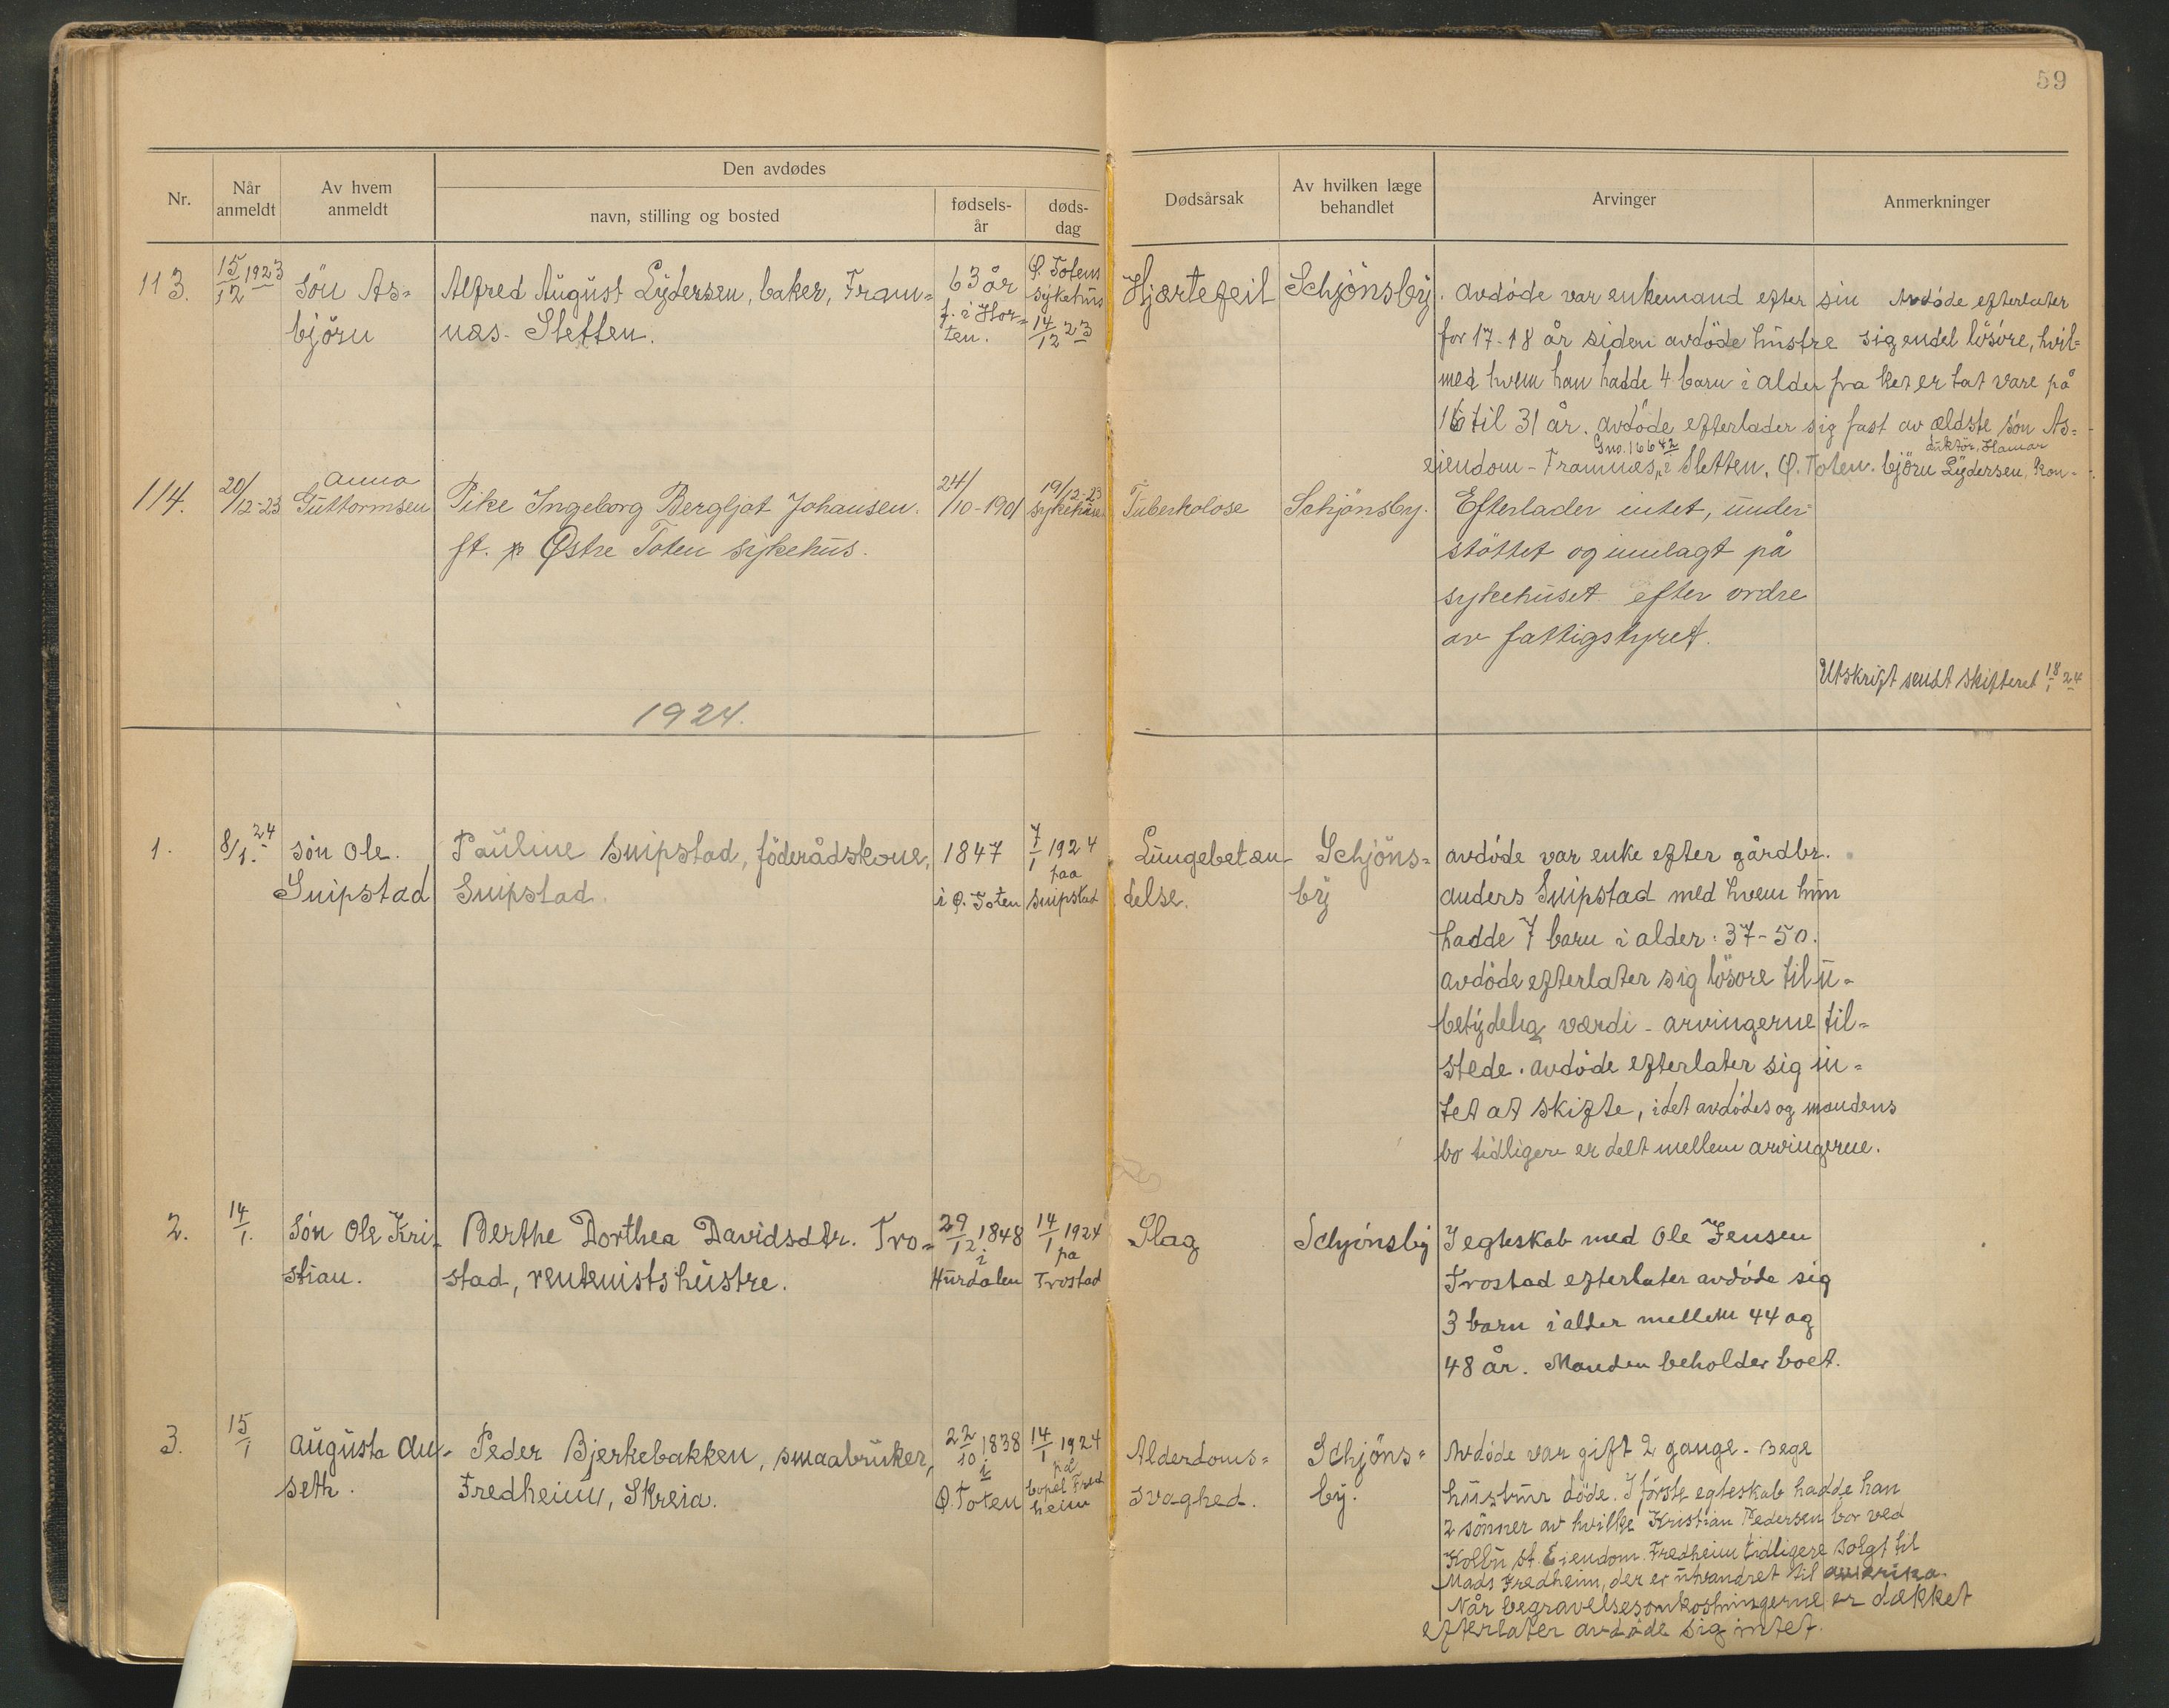 59
Nr.
Når anmeldt
Av hvem anmeldt
Den avdødes
navn, stilling og bosted
fødsels-år
døds-dag
Dødsårsak
Av hvilken læge behandlet
Arvinger
Anmerkninger
113.
15/12 1923
Sön As-
björn
Alfred August Lydersen, baker, Fram-
næs - Sletten.
63 år
f. i Hor-
ten.
Ø. Totens
sykehus
14/12 23
Hjertefeil
Schjönsby.
Avdöde var enkemand efter sin
for 17-18 år siden avdöde hustre
med hvem han hadde 4 barn i alder fra
16 til 31 år. avdöde efterlader sig fast
Gno. 166 42
eiendom - Framnæs, i Sletten, Ø. Toten.
Avdöde efterlater
sig endel lösöre, hvil-
ket er tat vare på
av ældste sön As-
duktör, Hamar
björn Lydersen, kon-
114.
20/12-23
Anna
Guttormsen
Pike Ingeborg Bergljot Johansen.
ft. p Østre Toten sykehus.
24/10-1901
19/12-23
sykehuset
Tuberkolose
Schjönsby.
Efterlader intet, under-
stöttet og innlagt på
sykehuset efter ordre
av fattigstyret.
Utskrift sendt skifteret 18/1 24
1924.
1.
8/1. 24
sön Ole.
Snipstad
Pauline Snipstad, föderådskone,
Snipstad.
1847
i Ø. Toten
7/1 1924
paa
Snipstad
Lungebetæn-
delse.
Schjöns-
by
avdöde var enke efter gårdbr.
anders Snipstad med hvem hun
hadde 7 barn i alder: 37-50.
avdöde efterlater sig lösöre til u-
betydelig værdi - arvingerne til-
stede. avdöde efterlater sig in-
tet at skifte, idet avdödes og mandens
bo tidligere er delt mellem arvingerne.
2.
14/1.
Sön Ole Kri-
stian.
Berthe Dorthea Davidsdtr. Tro-
stad, rentenistshustre.
29/12 1848
i
Hurdalen
14/1 1924
pa
Trostad
Slag
Schjönsby
I egteskab med Ole Jensen
Trostad efterlater avdöde sig
3 barn i alder mellem 44 og
48 år. Manden beholder boet.
3.
15/1
Augusta An-
seth.
Peder Bjerkebakken, smaabruker,
Fredheim, Skreia.
22/10 1838
i
Ø. Toten
14/1 1924
på
bopel Fred
heim
Alderdoms-
svaghed.
Schjöns-
by.
Avdöde var gift 2 gange - bege
hustrur döde. I förste egteskab hadde han
2 sönner av hvilke Kristian Pedersen bor ved
Kolbu st. Eiendom Fredheim tidligere solgt til
Mads Fredheim, der er utvandret til amerika.
Når begravelsesomkostningerne er dækket
efterlater avdöde sig intet.